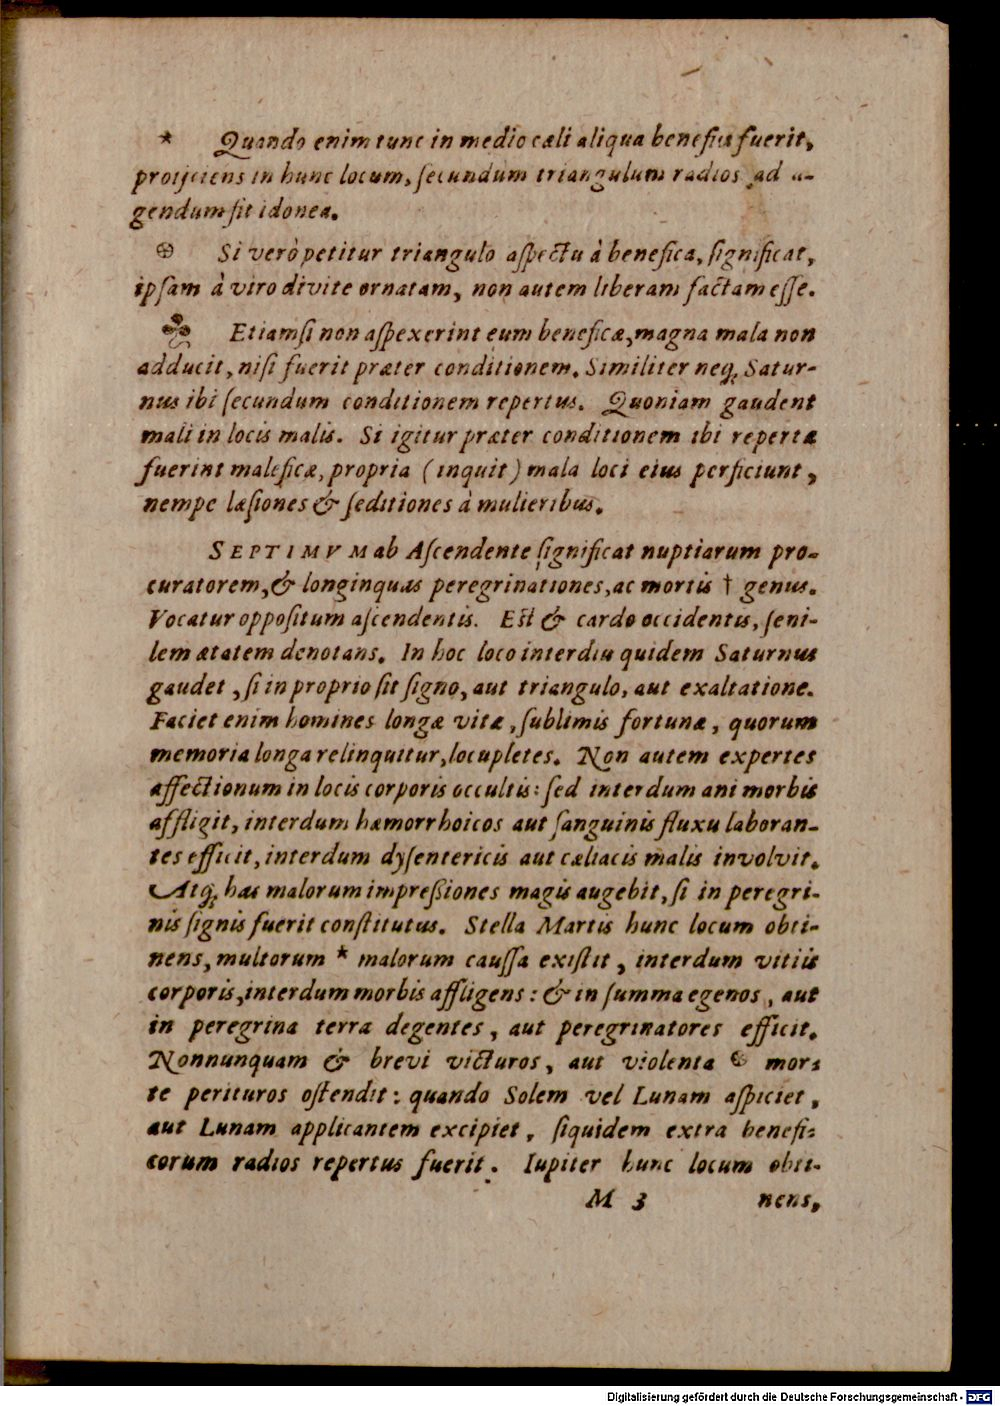 * Quando enim tunc in medio cæli aliqua benefica fuerit,
proijciens in hunc locum, ſecundum triangulum radios ad a-
gendum ſit idonea.
⊕ Si verò petitur triangulo aſpectu à benefica, ſignificat,
ipſam à viro divite ornatam, non autem liberam factam eſſe.
Etiamſi non aſpexerint eum beneficæ, magna mala non
adducit, niſi fuerit præter conditionem. Similiter neq; Satur-
nus ibi ſecundum conditionem repertus. Quoniam gaudent
mali in locis malis. Si igitur præter conditionem ibi repertæ
fuerint maleficæ, propria (inquit) mala loci eius perficiunt,
nempe læſiones & ſeditiones à mulieribus.
SEPTIMVM ab Aſcendente ſignificat nuptiarum pro-
curatorem, & longinquas peregrinationes, ac mortis † genus.
Vocatur oppoſitum aſcendentis. Eſt & cardo occidentis, ſeni-
lem ætatem denotans. In hoc loco interdiu quidem Saturnus
gaudet, ſi in proprio ſit ſigno, aut triangulo, aut exaltatione.
Faciet enim homines longæ vitæ, ſublimis fortunæ, quorum
memoria longa relinquitur, locupletes. Non autem expertes
affectionum in locis corporis occultis: ſed interdum ani morbis
affligit, interdum hæmorrhoicos aut ſanguinis fluxu laboran-
tes efficit, interdum dyſentericis aut cæliacis malis involvit.
Atq; has malorum impreſſiones magis augebit, ſi in peregri-
nis ſignis fuerit conſtitutus. Stella Martis hunc locum obti-
nens, multorum * malorum cauſſa exiſtit, interdum vitiis
corporis, interdum morbis affligens: & in ſumma egenos, aut
in peregrina terra degentes, aut peregrinatores efficit.
Nonnunquam & brevi victuros, aut violenta ⊕ mor-
te perituros oſtendit: quando Solem vel Lunam aſpiciet,
aut Lunam applicantem excipiet, ſiquidem extra benefi-
corum radios repertus fuerit. Iupiter hunc locum obti-
M 3 nens,
Digitalisierung gefördert durch die Deutsche Forschungsgemeinschaft - DFG